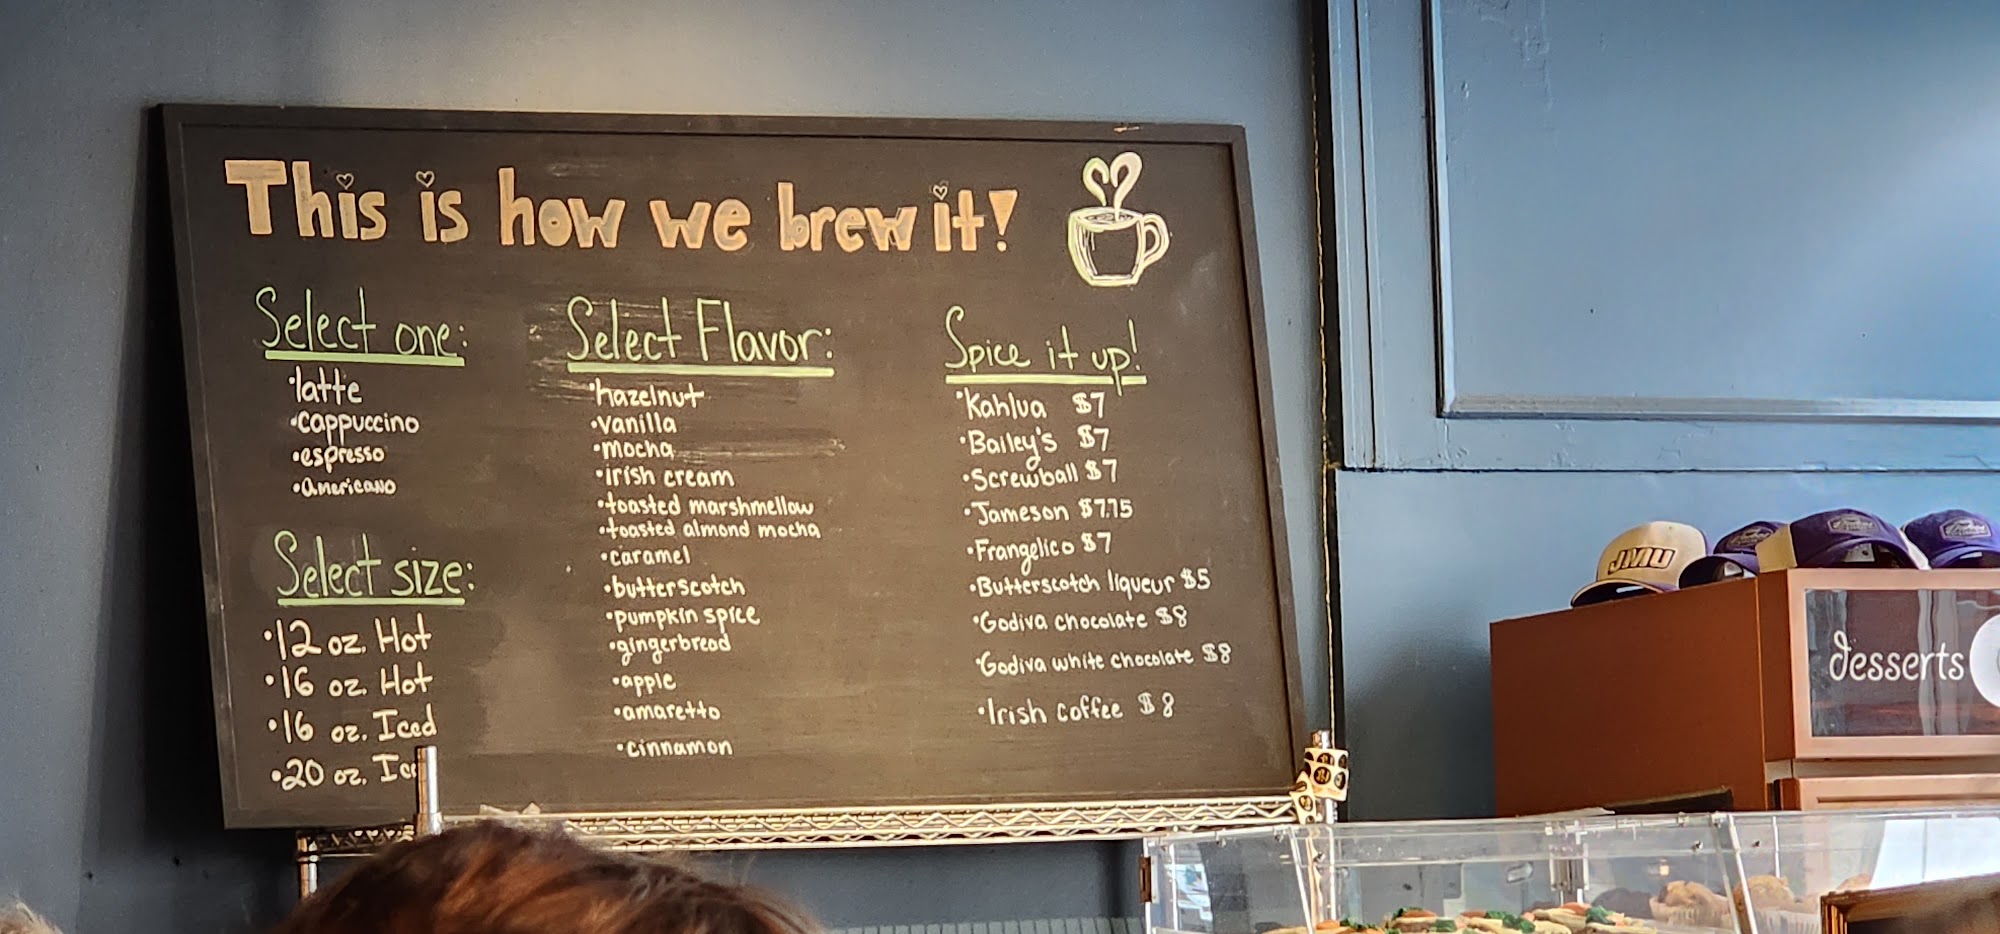 This is how we brew it!
Select one:
•latte
•cappuccino
•espresso
•americano
Select size:
•12 oz. Hot
•16 oz. Hot
•16 oz. Iced
•20 oz.
Select Flavor:
•hazelnut
•vanilla
•mocha
•irish cream
•toasted marshmellow
•toasted almond mocha
•caramel
•butterscotch
•pumpkin spice
•gingerbread
•apple
•amaretto
•cinnamon
Spice it up!
•Kahlua $7
•Bailey's $7
•Screwball $7
•Jameson $7.75
•Frangelico $7
•Butterscotch liqueur $5
•Godiva chocolate $8
•Godiva white chocolate $8
•Irish coffee $8
JMU
desserts